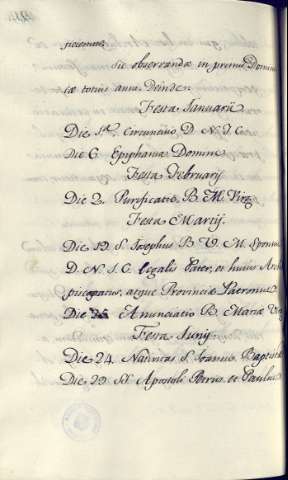 sic observandæ in primis Domini-
cæ totius anni. Deinde.
Festa Januarii
Die 1.ª Circuncisio D. N. J. C.
Die 6 Epiphania Domini
Festa Februarij
Die 2. Purificatio B. M. Virg.
Festa Martij.
Die 19 S. Josephus B. V. M. Sponsus
D. N. J. C. legalis Pater, et huius Archi
piscopatus, atque Provinciæ Patronus
Die 25 Anunciatio B. Mariæ Vir
Festa Junij
Die 24. Nativitas S. Joannis Baptistæ
Die 29 SS. Apostoli Petrus et Paulus